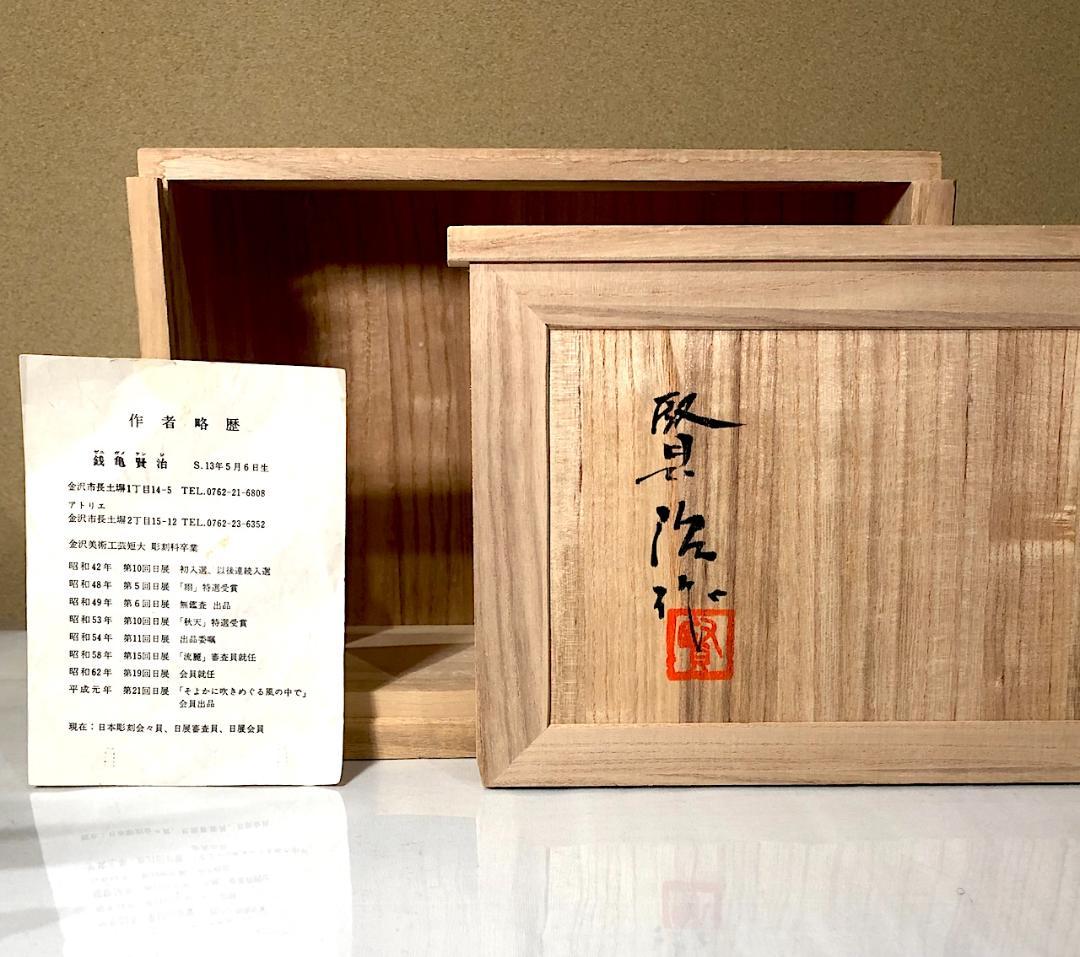 作者略歴
ゼニ ガメ ケン ジ
銭亀賢治 S.13年5月6日生
金沢市長土塀1丁目14-5 TEL.0762-21-6808
アトリエ
金沢市長土塀2丁目15-12 TEL.0762-23-6352
金沢美術工芸短大 彫刻科卒業
昭和42年 第10回日展 初入選、以後連続入選
昭和48年 第5回日展 「翔」特選受賞
昭和49年 第6回日展 無鑑査 出品
昭和53年 第10回日展 「秋天」特選受賞
昭和54年 第11回日展 出品委嘱
昭和58年 第15回日展 「流麗」審査員就任
昭和62年 第19回日展 会員就任
平成元年 第21回日展 「そよかに吹きめぐる風の中で」
会員出品
現在:日本彫刻会々員、日展審査員、日展会員
賢治作
賢